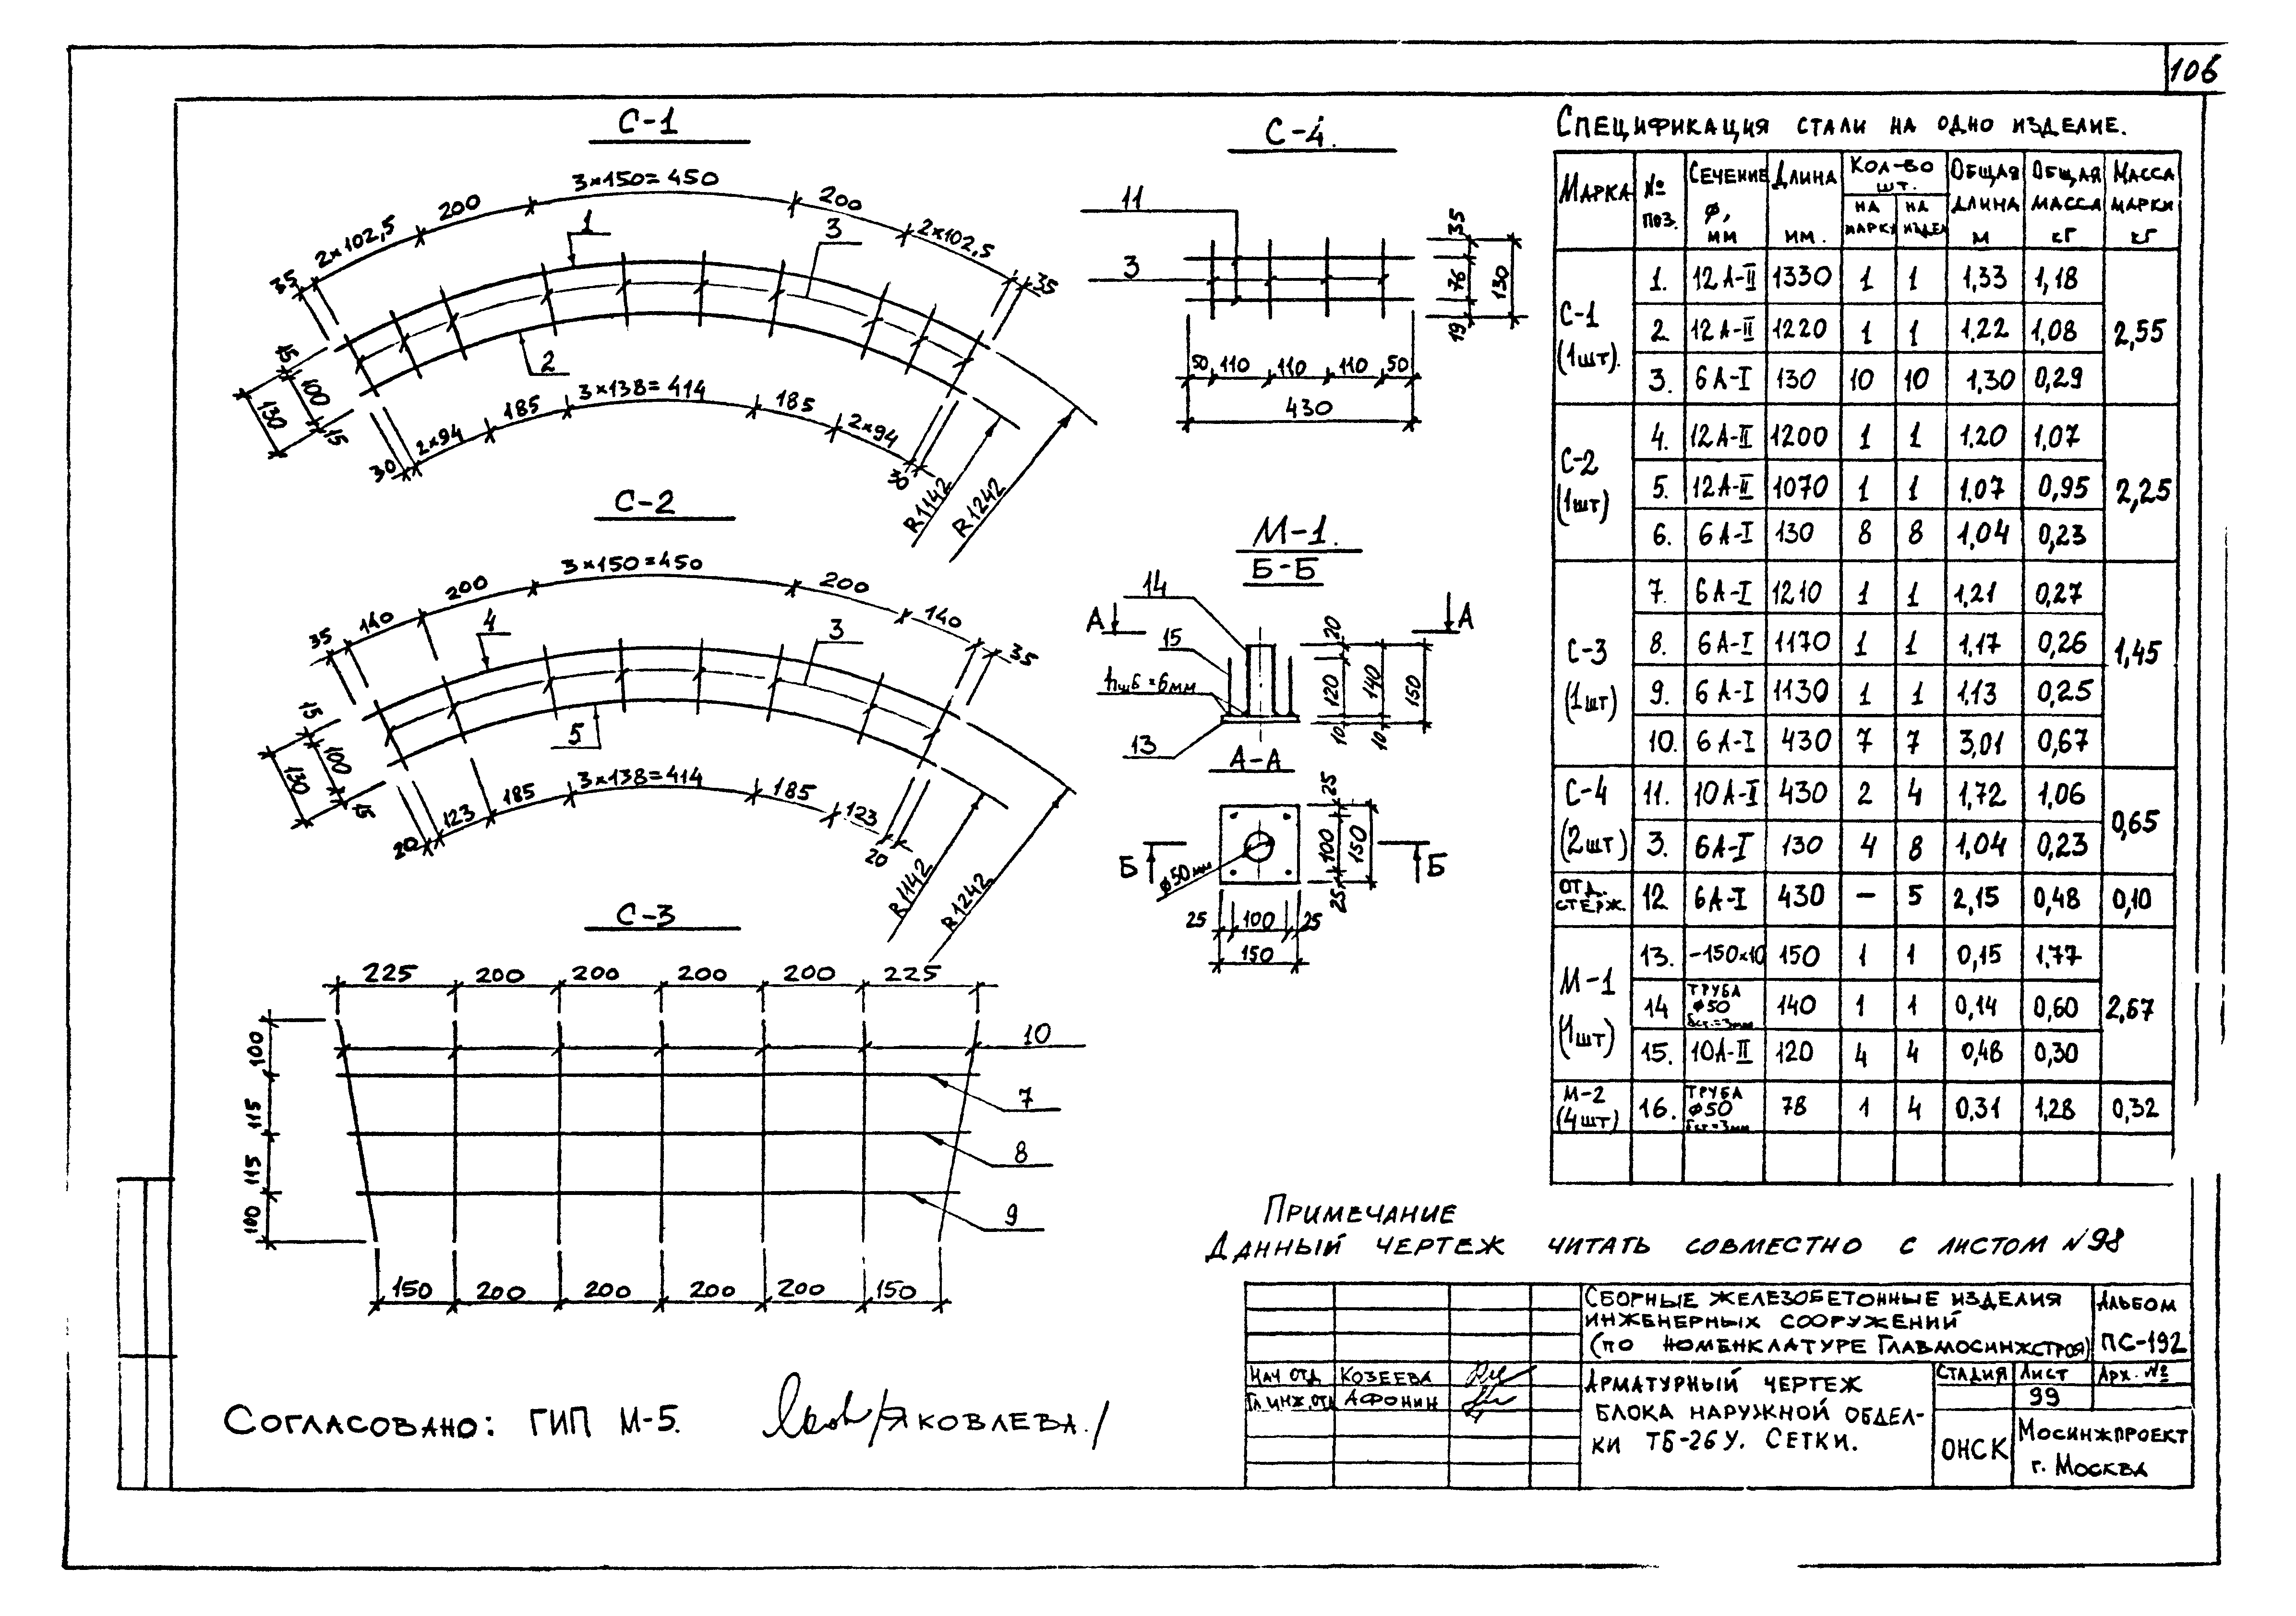 106
С-1
35
2×102,5
200
3×150=450
200
2×102,5
35
1
3
2
15
100
15
130
30
2×94
185
3×138=414
185
2×94
30
R1142
R1242
С-2
35
140
200
3×150=450
200
140
35
4
3
5
15
100
15
130
20
123
185
3×138=414
185
123
20
R1142
R1242
С-3
225 200 200 200 200 225
100
115
115
100
10
7
8
9
150 200 200 200 200 150
С-4.
11
3
35
76
19
130
50 110 110 110 50
430
М-1.
Б-Б
14
А А
15
hшб=6мм
13
20
120
10
140
10
150
А-А
Б Б
ø50мм
25
100
25
150
25 100 25
150
Спецификация стали на одно изделие.
Марка № поз. Сечение ø, мм Длина мм. Кол-во шт. на марку на издел Общая длина м Общая масса кг Масса марки кг
С-1 (1шт). 1. 12А-II 1330 1 1 1,33 1,18 2,55
2. 12А-II 1220 1 1 1,22 1,08
3. 6А-I 130 10 10 1,30 0,29
С-2 (1шт) 4. 12А-II 1200 1 1 1,20 1,07 2,25
5. 12А-II 1070 1 1 1,07 0,95
6. 6А-I 130 8 8 1,04 0,23
С-3 (1шт) 7. 6А-I 1210 1 1 1,21 0,27 1,45
8. 6А-I 1170 1 1 1,17 0,26
9. 6А-I 1130 1 1 1,13 0,25
10. 6А-I 430 7 7 3,01 0,67
С-4 (2шт) 11. 10А-I 430 2 4 1,72 1,06 0,65
3. 6А-I 130 4 8 1,04 0,23
Отд. стерж. 12 6А-I 430 – 5 2,15 0,48 0,10
М-1 (1шт) 13. -150×10 150 1 1 0,15 1,77 2,67
14 Труба ø50 δст.=3мм 140 1 1 0,14 0,60
15. 10А-II 120 4 4 0,48 0,30
М-2 (4шт) 16. Труба ø50 δст.=3мм 78 1 4 0,31 1,28 0,32
Примечание
Данный чертеж читать совместно с листом N98
Сборные железобетонные изделия
инженерных сооружений
(по номенклатуре Главмосинжстроя)
Альбом
ПС-192
Нач отд Козеева
Гл.инж.отд Афонин
Арматурный чертеж
блока наружной обдел-
ки ТБ-26У. Сетки.
Стадия Лист Арх. №
99
ОНСК
Мосинжпроект
г. Москва
Согласовано: ГИП М-5. /Яковлева./